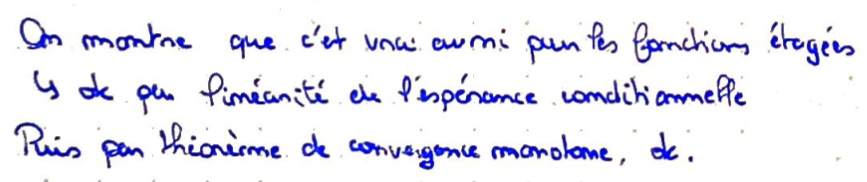 On montre que c'est vrai aussi pour les fonctions étagées
↳ ok par linéarité de l'espérance conditionnelle
Puis par théorème de convergence monotone, ok.